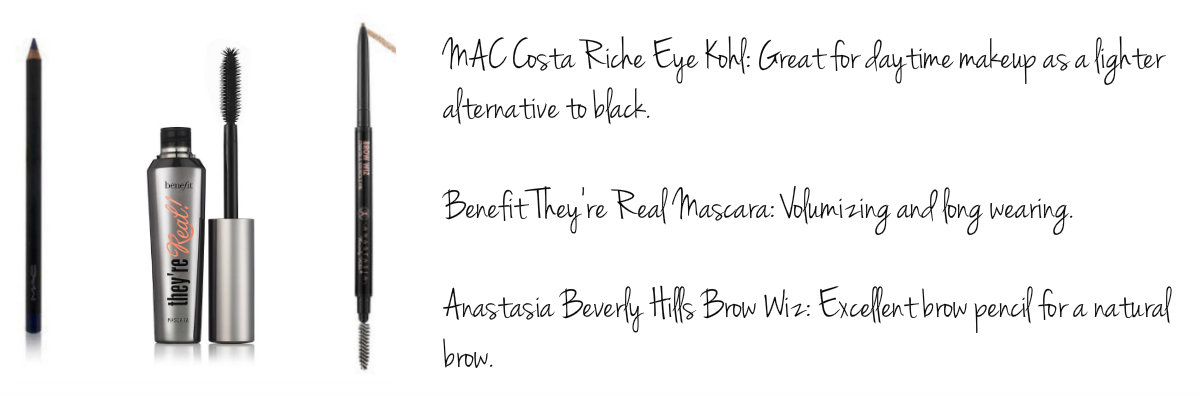 MAC
benefit
they're Real!
MASCARA
BROW WIZ
ANASTASIA
MAC Costa Riche Eye Kohl: Great for daytime makeup as a lighter
alternative to black.
Benefit They're Real Mascara: Volumizing and long wearing.
Anastasia Beverly Hills Brow Wiz: Excellent brow pencil for a natural
brow.